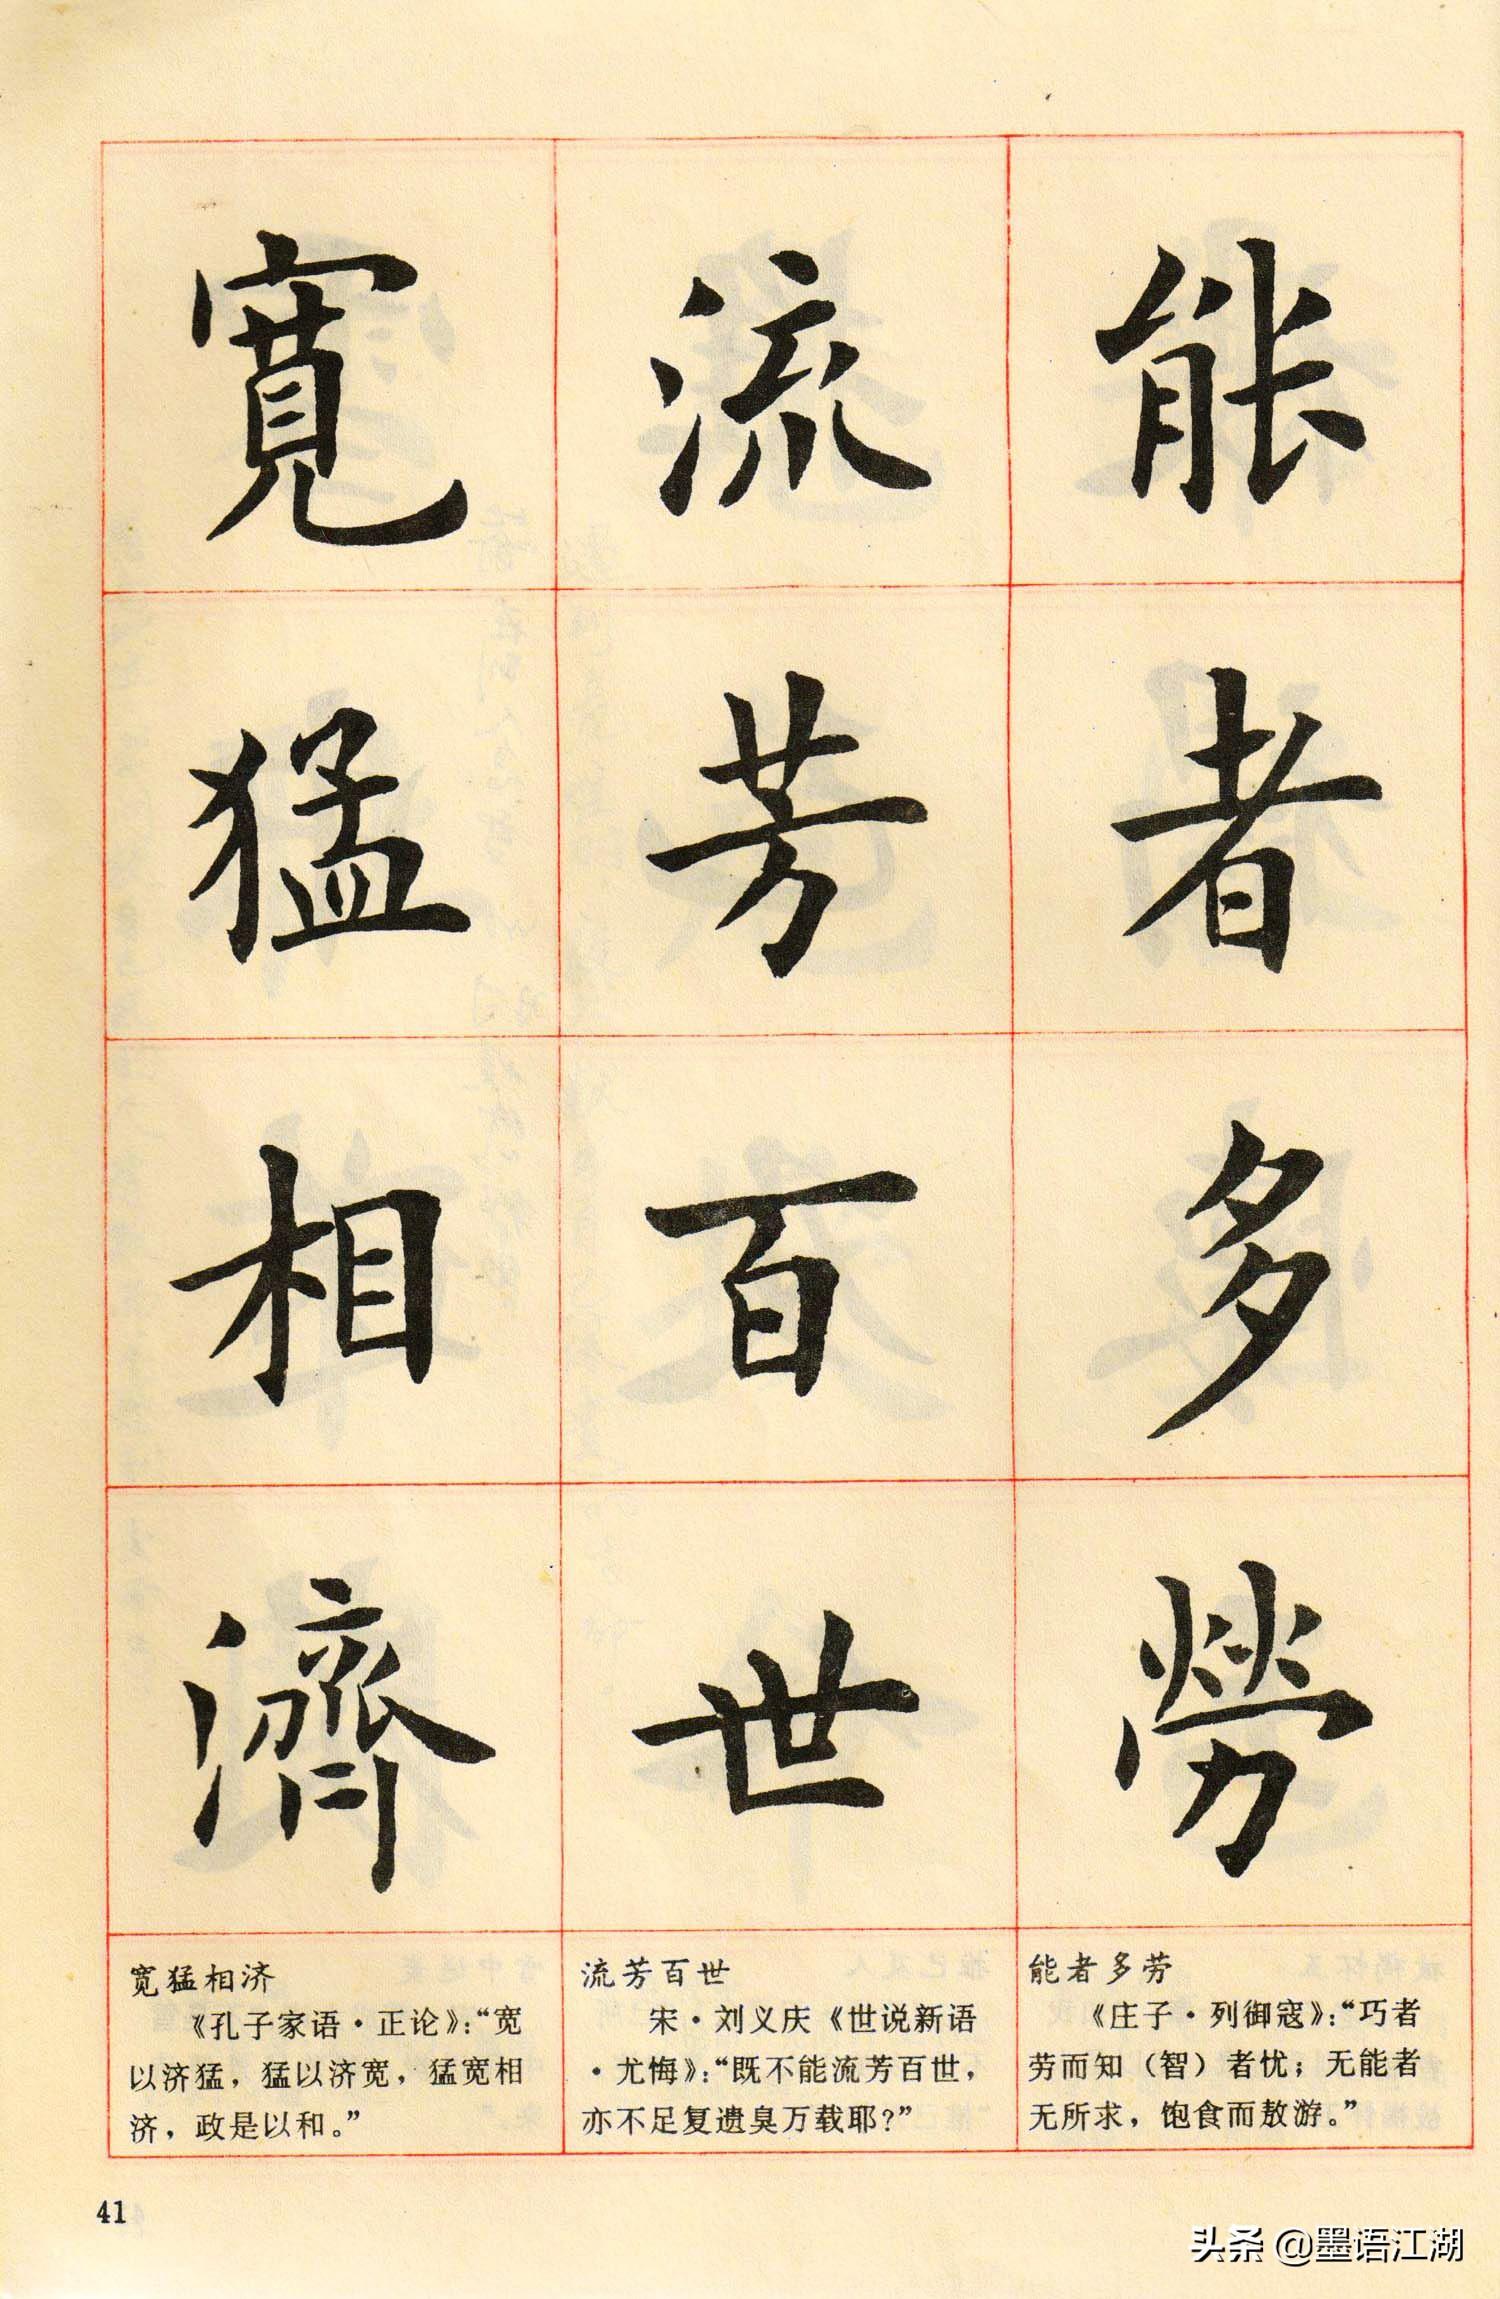 能者多勞
流芳百世
寬猛相濟
能者多劳
《庄子·列御寇》：“巧者
劳而知（智）者忧；无能者
无所求，饱食而敖游。”
流芳百世
宋·刘义庆《世说新语
·尤悔》：“既不能流芳百世，
亦不足复遗臭万载耶？”
宽猛相济
《孔子家语·正论》：“宽
以济猛，猛以济宽，猛宽相
济，政是以和。”
41
头条 @墨语江湖